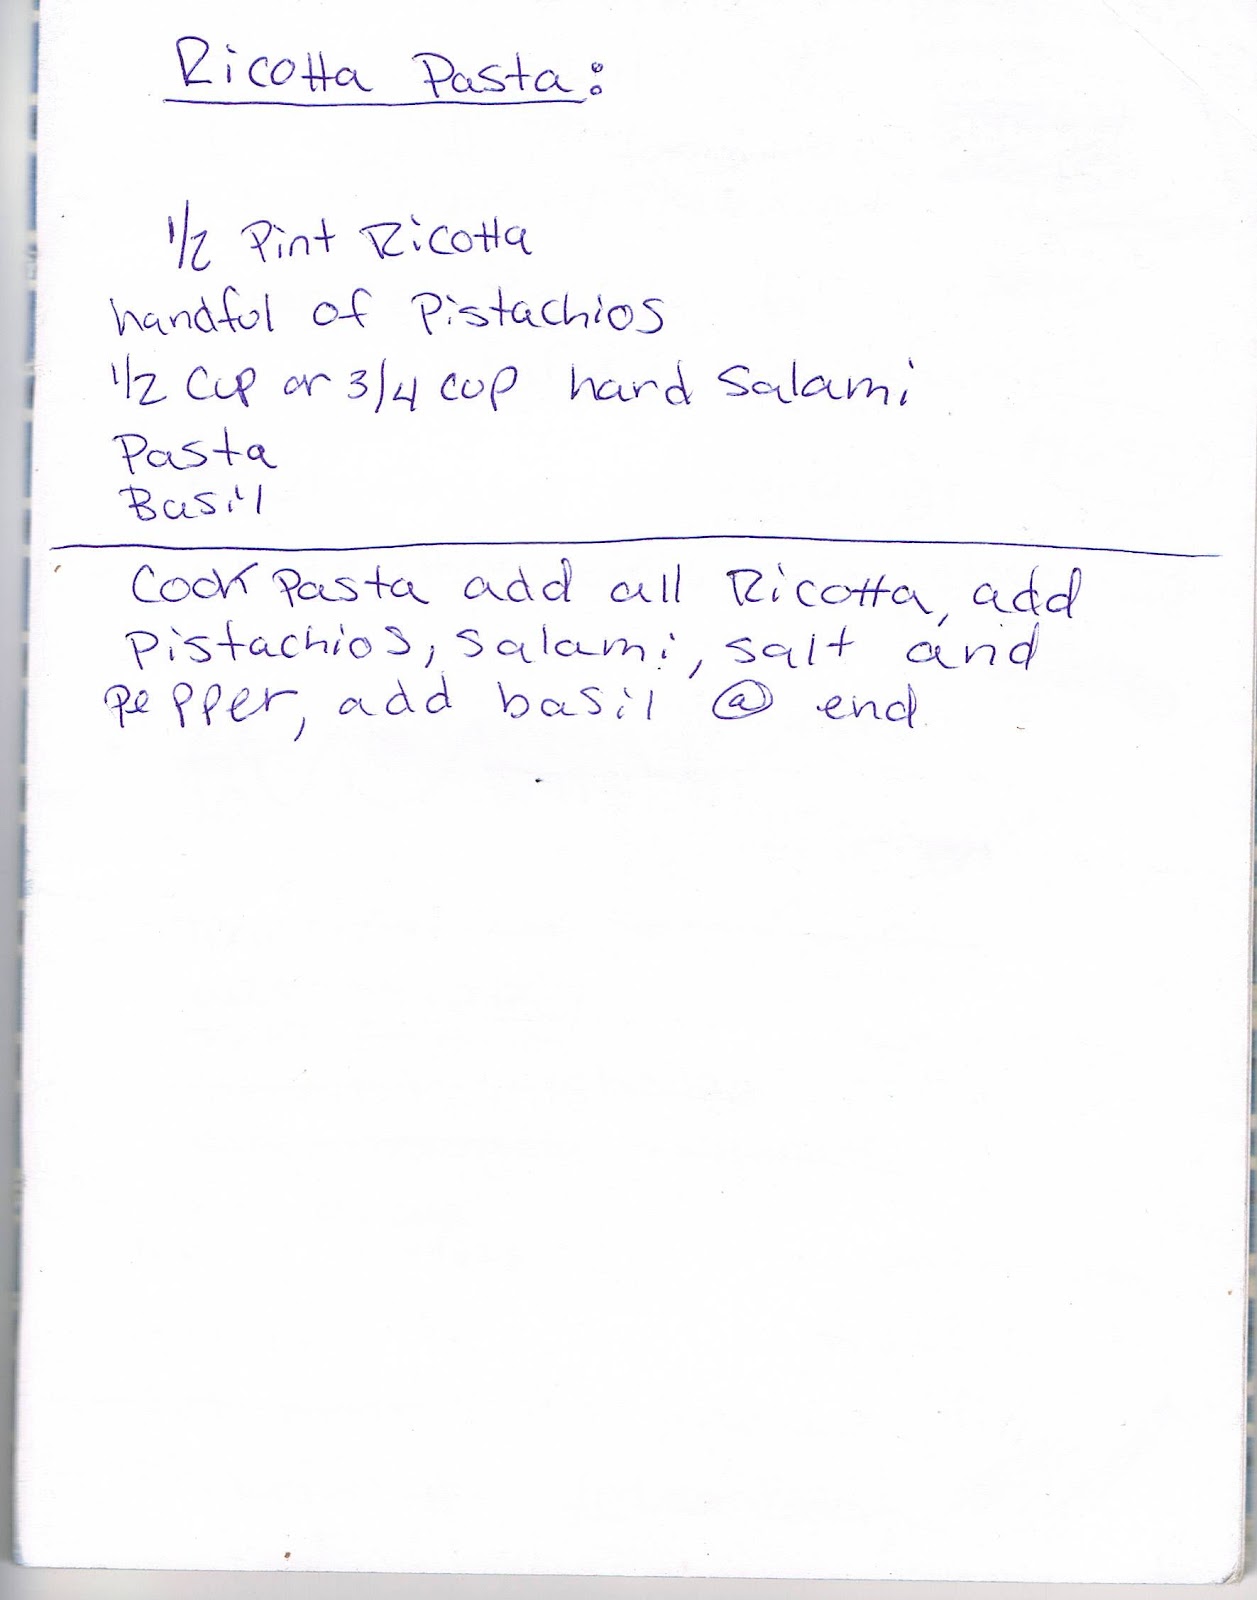 Ricotta Pasta:
1/2 Pint Ricotta
handful of Pistachios
1/2 Cup or 3/4 cup hard Salami
Pasta
Basil
Cook Pasta add all Ricotta, add
Pistachios, salami, salt and
pepper, add basil @ end